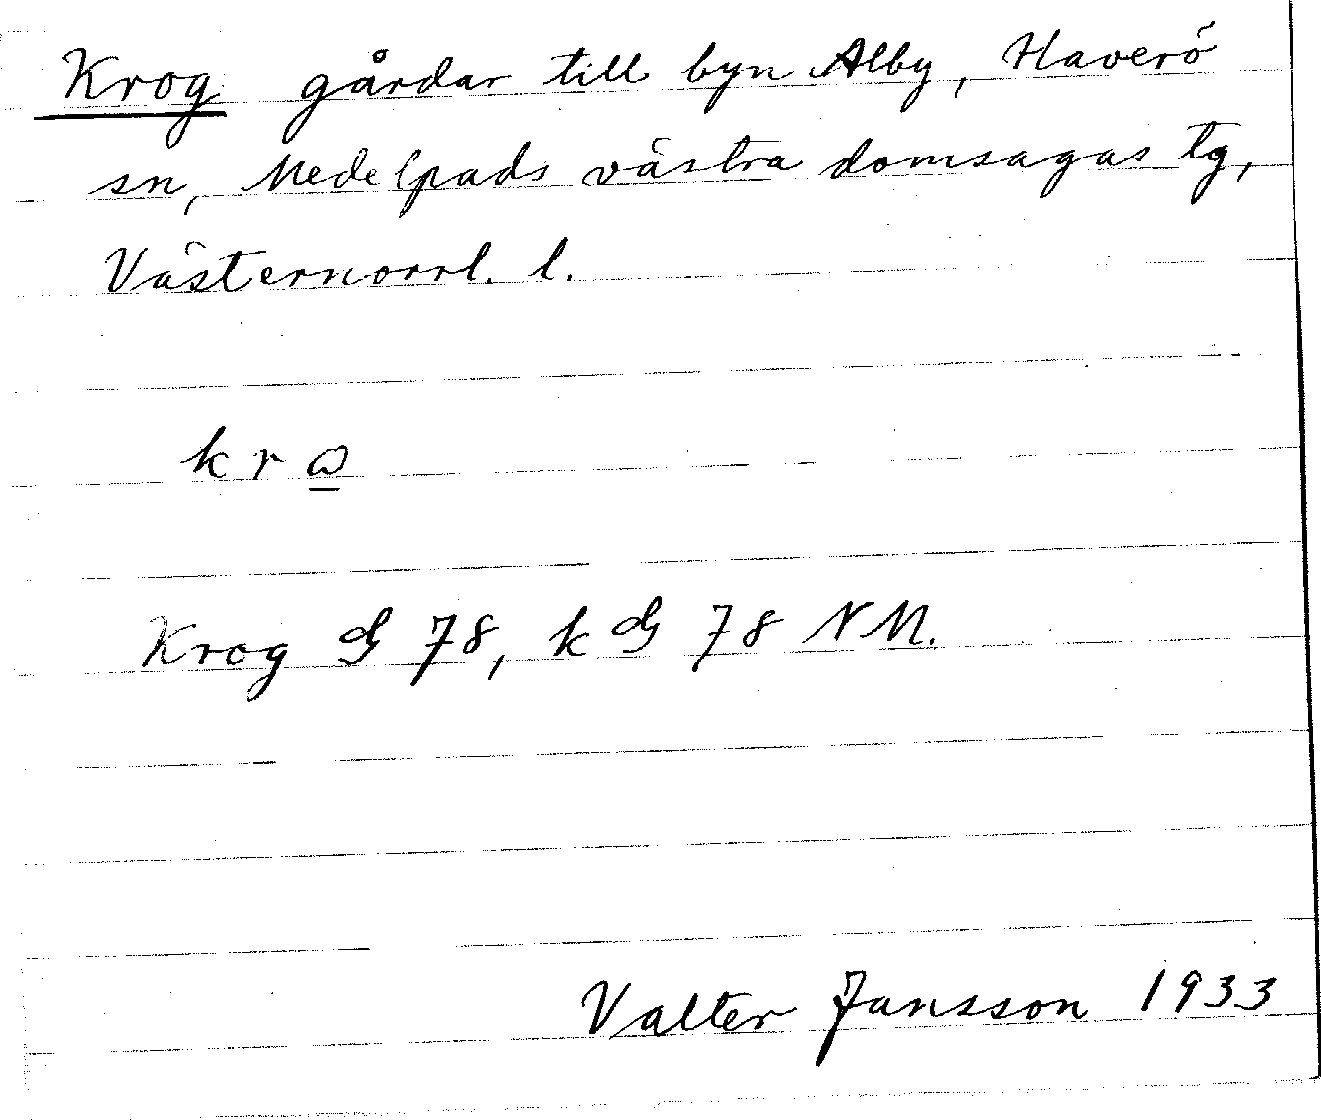 Krog gårdar till byn Alby, Haverö
sn, Medelpads västra domsagas tg,
Västernorrl. l.
kr
Krog G 78, k G 78 NM.
Valter Jansson 1933